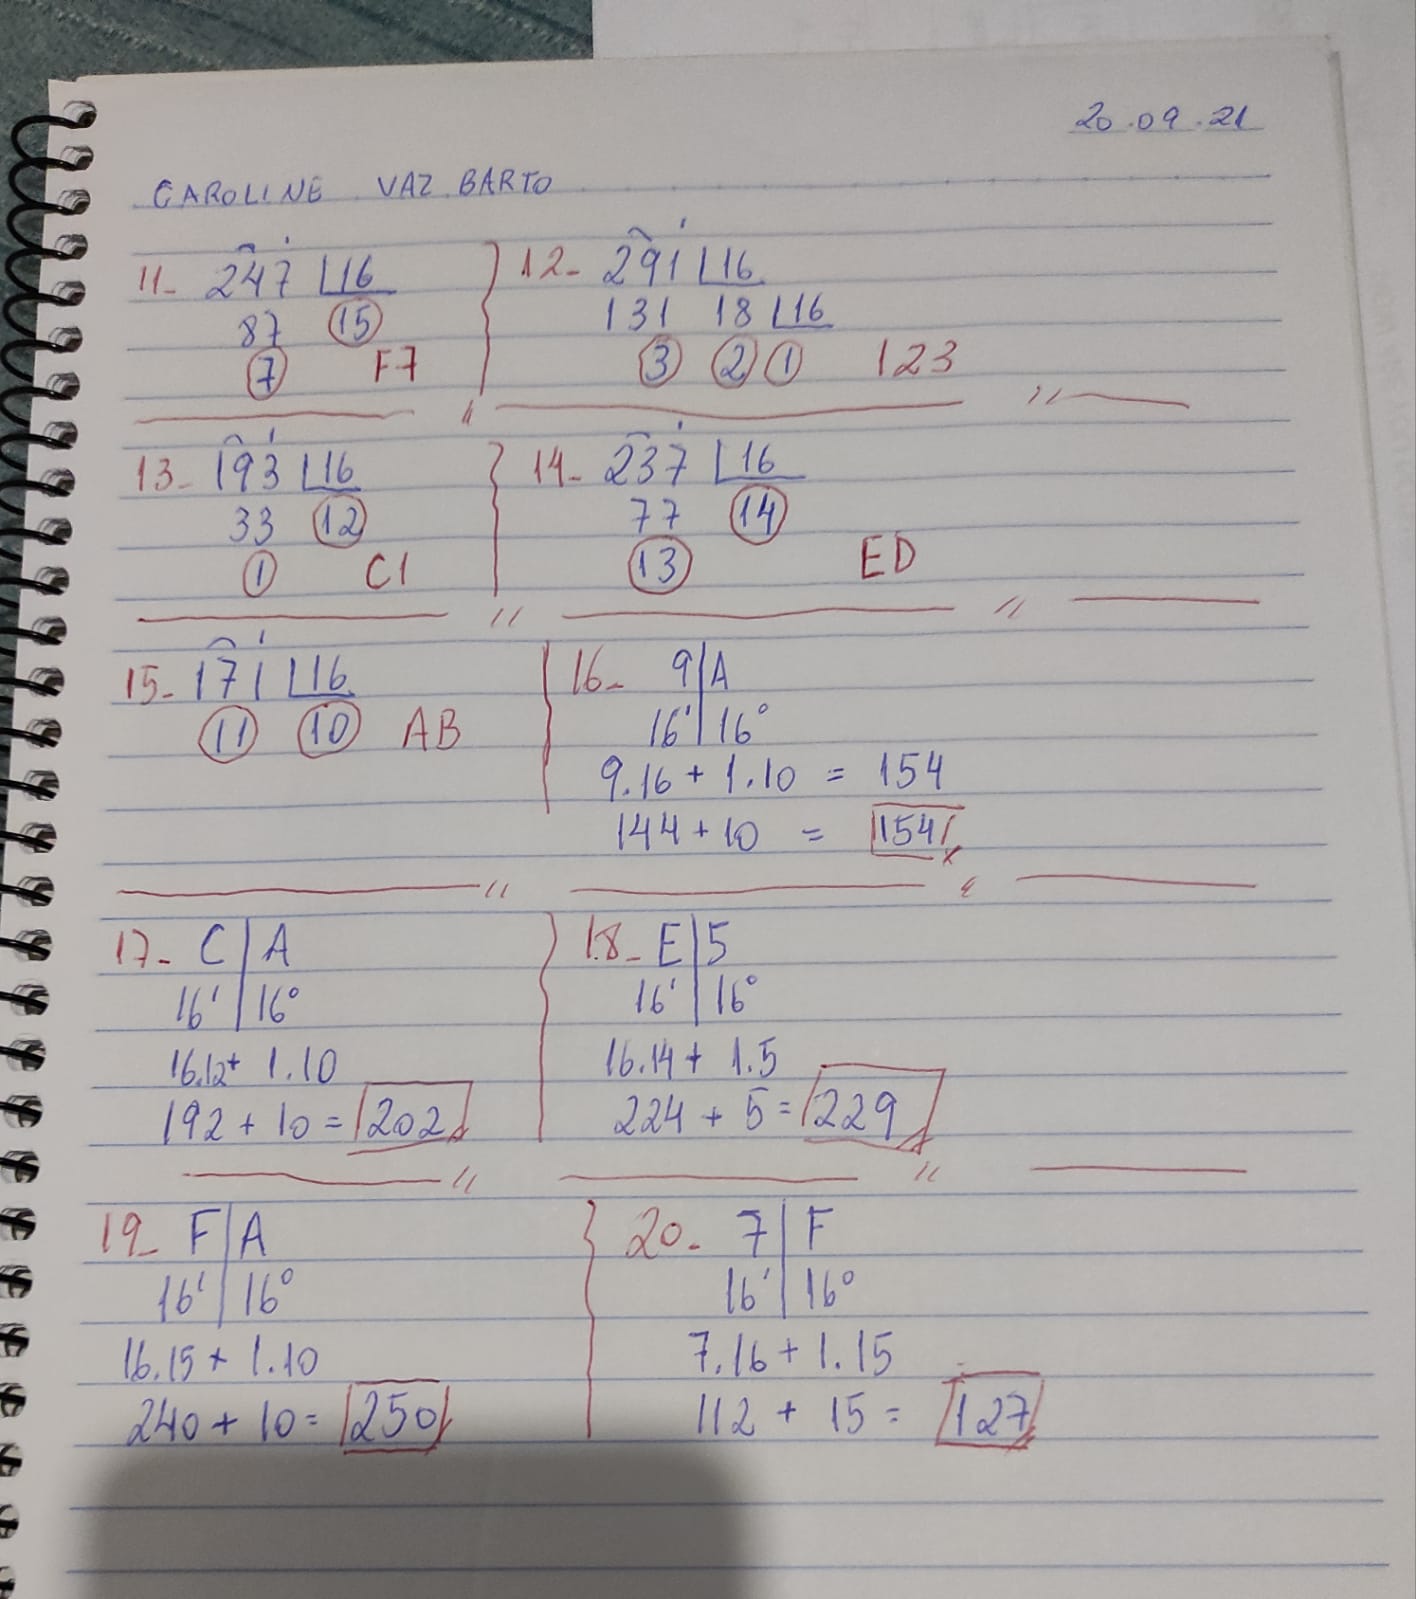 20.09.21
CAROLINE VAZ BARTO
11- 247 16
87 15
7 F7
12- 291 16
131 18 16
3 2 1 123
13- 193 16
33 12
1 C1
14- 237 16
77 14
13 ED
15- 171 16
11 10 AB
16- 9 A
16¹ 16⁰
9.16 + 1.10 = 154
144 + 10 = 154
17- C A
16¹ 16⁰
16.12 + 1.10
192 + 10 = 202
18- E 5
16¹ 16⁰
16.14 + 1.5
224 + 5 = 229
19- F A
16¹ 16⁰
16.15 + 1.10
240 + 10 = 250
20- 7 F
16¹ 16⁰
7.16 + 1.15
112 + 15 = 127